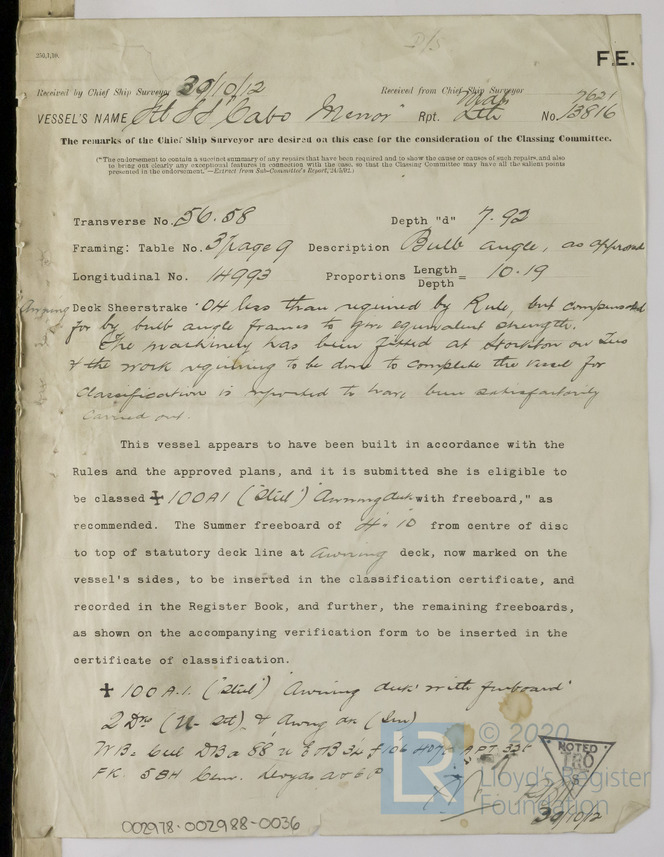 F.E.
Received by Chief Ship Surveyor 29/10/12 Received from Chief Ship Surveyor
7621
VESSEL'S NAME "Cabo Menor" Rpt. Lth No. 13816
The remarks of the Chief Ship Surveyor are desired on this case for the consideration of the Classing Committee.
("The endorsement to contain a succinct summary of any repairs that have been required and to show the cause or causes of such repairs, and also
to bring out clearly any exceptional features in connection with the case, so that the Classing Committee may have all the salient points
presented in the endorsement."—Extract from Sub-Committee's Report, 24/5/02.)
Transverse No. 56.58 Depth "d" 7.92
Framing: Table No. 3 page 9 Description Bulb angle, as approved
Longitudinal No. 14993 Proportions Length/Depth = 10.19
Awning Deck Sheerstrake .04 less than required by Rule, but compensated
for by bulb angle frames to give equivalent strength.
The machinery has been fitted at Stockton on Tees
& the work requiring to be done to complete the vessel for
Classification is reported to have been satisfactorily
carried out.
This vessel appears to have been built in accordance with the
Rules and the approved plans, and it is submitted she is eligible to
be classed ✠ 100A1 ("Steel") "Awning deck with freeboard," as
recommended. The Summer freeboard of 4 - 10 from centre of disc
to top of statutory deck line at Awning deck, now marked on the
vessel's sides, to be inserted in the classification certificate, and
recorded in the Register Book, and further, the remaining freeboards,
as shown on the accompanying verification form to be inserted in the
certificate of classification.
✠ 100A.1. ("Steel") "Awning deck with freeboard"
2 Dks & Awng dk
W B = Cell D B a 88' 106 407t A P T 33t
F K 5 B H Cem. Lloyds A & C P
© 2020
LR Lloyd's Register
Foundation
NOTED
30/10/12
002978-002988-0036